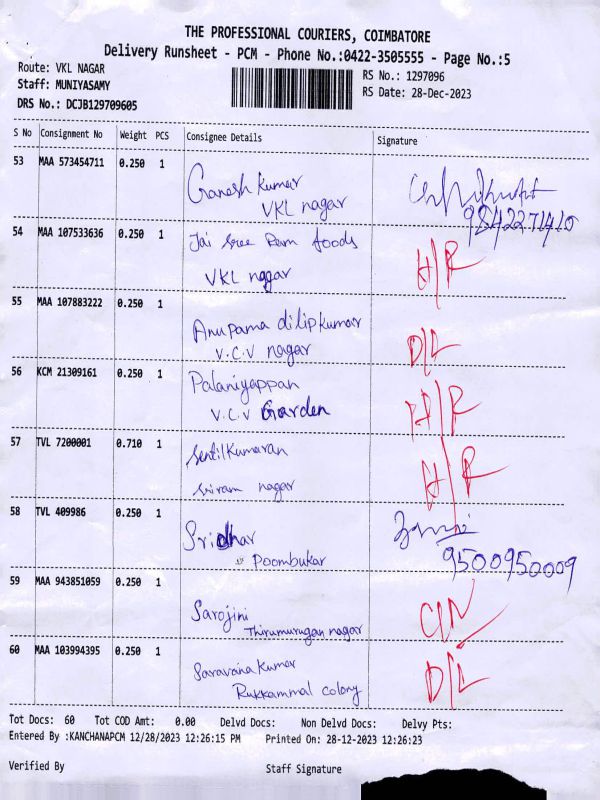 THE PROFESSIONAL COURIERS, COIMBATORE
Delivery Runsheet - PCM - Phone No.:0422-3505555 - Page No.:5
Route: VKL NAGAR
RS No.: 1297096
Staff: MUNIYASAMY
RS Date: 28-Dec-2023
DRS No.: DCJB129709605
S No Consignment No Weight PCS Consignee Details Signature
53 MAA 573454711 0.250 1
Ganesh kumar
VKL nagar
9842271410
54 MAA 107533636 0.250 1
Jai Sree Ram foods
VKL nagar
H/R
55 MAA 107883222 0.250 1
Anupama dilipkumar
V.C.V nagar
D/L
56 KCM 21309161 0.250 1
Palaniyappan
V.C.V Garden
H/R
57 TVL 7200001 0.710 1
Sentilkumaran
Sriram nagar
H/R
58 TVL 409986 0.250 1
Sridhar
Poombukar
9500950009
59 MAA 943851059 0.250 1
Sarojini
Thirumurugan nagar
C/N
60 MAA 103994395 0.250 1
Saravana kumar
Rukkammal colony
D/L
Tot Docs: 60 Tot COD Amt: 0.00 Delvd Docs: Non Delvd Docs: Delvy Pts:
Entered By :KANCHANAPCM 12/28/2023 12:26:15 PM Printed On: 28-12-2023 12:26:23
Verified By Staff Signature